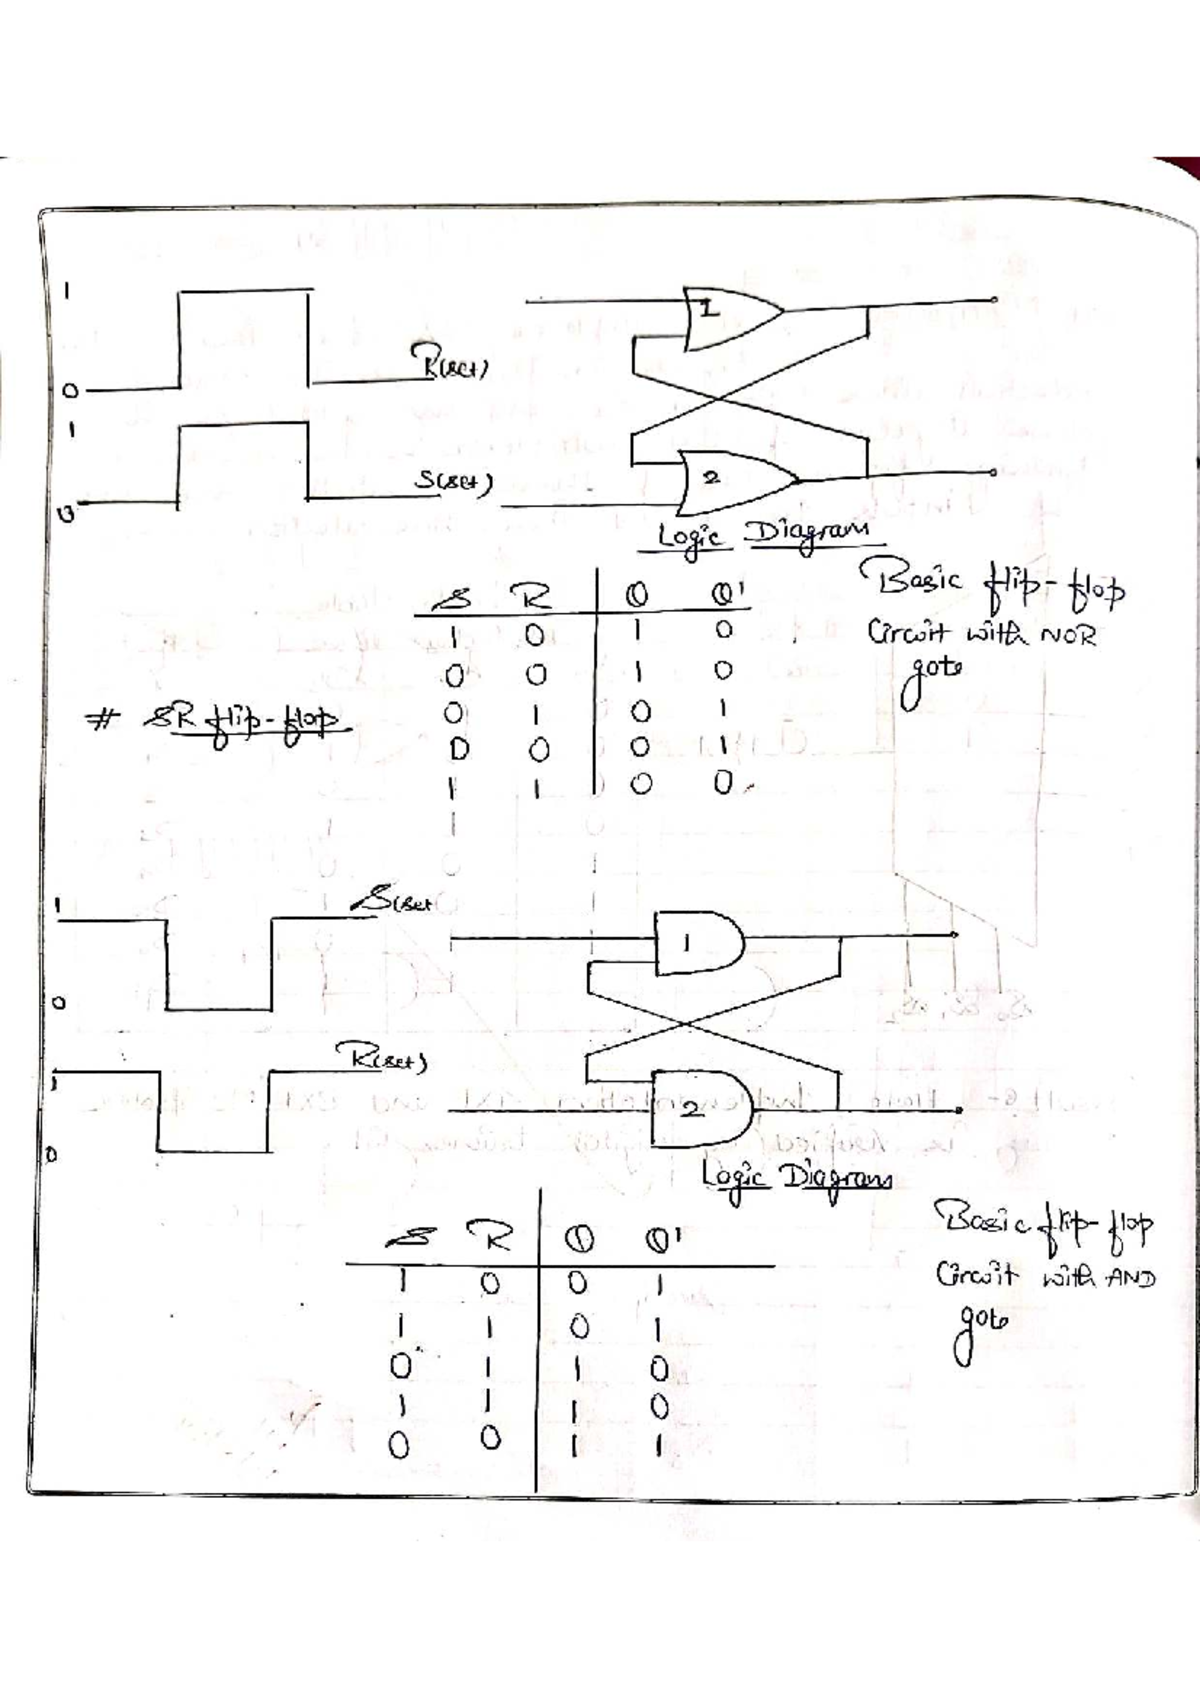 1
0
R(set)
1
0
S(set)
1
2
Logic Diagram
S R Q Q'
1 0 1 0
0 0 1 0
0 1 0 1
0 0 0 1
1 1 0 0
Basic flip-flop
Circuit with NOR
gate
# SR flip-flop
1
0
S(set
R(set)
1
0
1
2
Logic Diagram
S R Q Q'
1 0 0 1
1 1 0 1
0 1 1 0
1 1 1 0
0 0 1 1
Basic flip-flop
Circuit with AND
gate